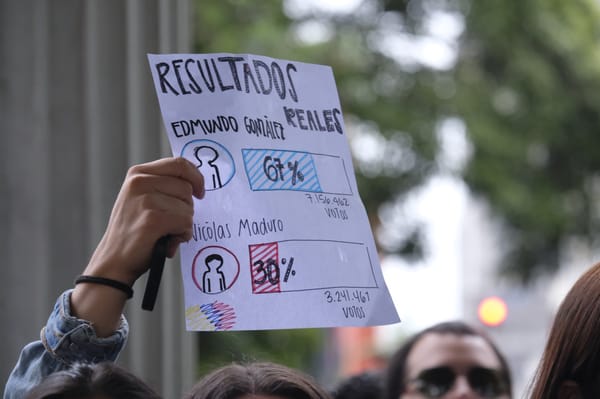 RESULTADOS
REALES
EDMUNDO GONZÁLEZ
67%
7.156.462
VOTOS
Nicolas Maduro
30%
3.241.461
VOTOS